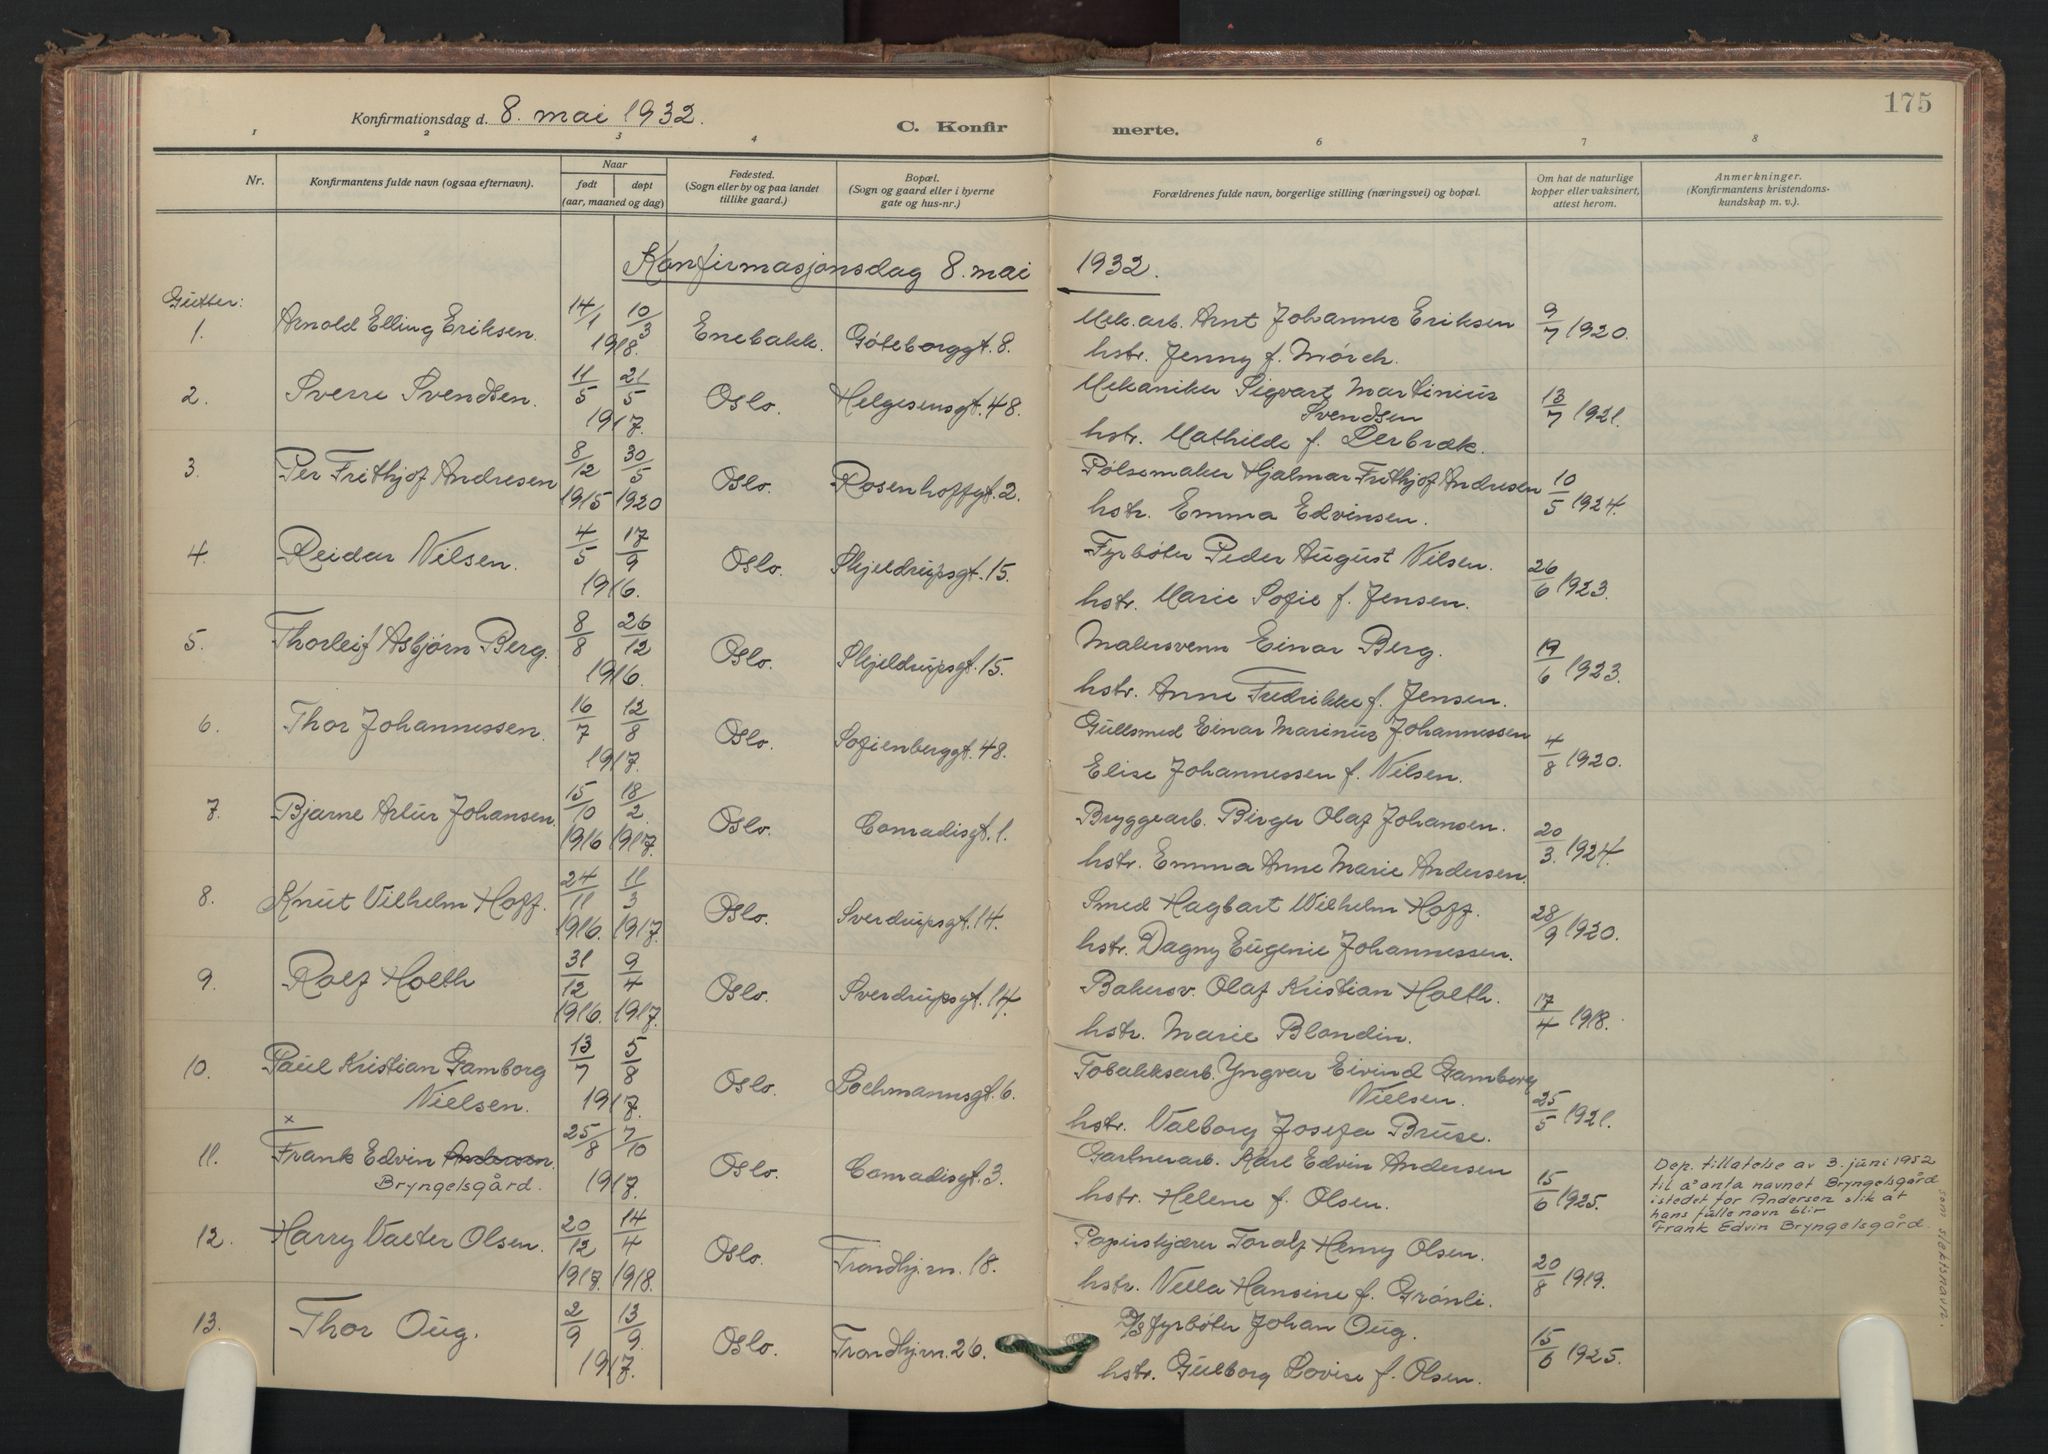 175
Konfirmationsdag d. 8. mai 1932.
C. Konfirmerte.
1 2 3 4 6 7 8
Nr.
Konfirmantens fulde navn (ogsaa efternavn).
Naar
født døpt
(aar, maaned og dag)
Fødested.
(Sogn eller by og paa landet
tillike gaard.)
Bopæl.
(Sogn og gaard eller i byerne
gate og hus-nr.)
Forældrenes fulde navn, borgerlige stilling (næringsvei) og bopæl.
Om hat de naturlige
kopper eller vaksinert,
attest herom.
Anmerkninger.
(Konfirmantens kristendoms-
kundskap m. v.).
Konfirmasjonsdag 8. mai 1932.
Gutter:
1. Arnold Elling Eriksen. 14/1 10/3 1918. Enebakk. Göteborggt. 8. Mek.arb. Arnt Johannes Eriksen 9/7 1920.
hstr. Jenny f. Mørch.
2. Sverre Svendsen. 11/5 21/5 1917. Oslo. Helgesensgt. 48. Mekaniker Sigvart Martinius 13/7 1921.
Svendsen
hstr. Mathilde f. Lerbræk.
3. Per Frithjof Andresen 8/12 1915 30/5 1920 Oslo. Rosenhoffgt. 2. Pølsemaker Hjalmar Frithjof Andresen 10/5 1924.
hstr. Emma Edvinsen.
4. Reidar Nilsen. 4/5 17/9 1916. Oslo. Skjeldrupsgt. 15. Fyrbøter Peder August Nilsen. 26/6 1923.
hstr. Marie Sofie f. Jensen.
5. Thorleif Asbjørn Berg. 8/8 26/12 1916. Oslo. Skjeldrupsgt. 15. Malersvenn Einar Berg. 19/6 1923.
hstr. Anne Fredrikke f. Jensen.
6. Thor Johannessen. 16/7 12/8 1917. Oslo. Sofienberggt. 48. Gullsmed Einar Marinus Johannessen 4/8 1920.
Elise Johannessen f. Nilsen.
7. Bjarne Artur Johansen. 15/10 1916 18/2 1917. Oslo. Conradisgt. 1. Bryggearb. Birger Olaf Johansen. 20/3. 1924.
hstr. Emma Anne Marie Andersen.
8. Knut Vilhelm Hoff. 24/11 1916. 11/3 1917. Oslo. Sverdrupsgt. 14. Smed Hagbart Wilhelm Hoff. 28/9 1920.
hstr. Dagny Eugenie Johannessen.
9. Rolf Holth 31/12 1916. 9/4 1917. Oslo. Sverdrupsgt. 14. Bakersv. Olaf Kristian Holth. 17/4 1918.
hstr. Marie Blondin.
10. Paul Kristian Gamborg 13/7 5/8 1917. Oslo. Lochmannsgt. 6. Tobakksarb. Yngvar Eivind Gamborg 25/5 1921.
Nielsen. Nielsen.
hstr. Valborg Josefa Bruse.
x
11. Frank Edvin Andersen. 25/8 7/10 1917. Oslo. Conradisgt. 3. Gartnerarb. Karl Edvin Andersen 15/6 1925.
Bryngelsgård. hstr. Helene f. Olsen.
Dep. tillatelse av 3. juni 1952
til å anta navnet Bryngelsgård
istedet for Andersen slik at
hans fulle navn blir
Frank Edvin Bryngelsgård.
som slektsnavn.
12. Harry Valter Olsen. 20/12 1917. 14/4 1918. Oslo. Trondhj.vn. 18. Papirskjærer Toralf Henry Olsen. 20/8 1919.
hstr. Vella Hansine f. Grønli.
13. Thor Oug. 2/9 13/9. 1917. Oslo. Trondhj.vn. 26. D/S fyrbøter Johan Oug. 15/6 1925.
hstr. Gulborg Lovise f. Olsen.